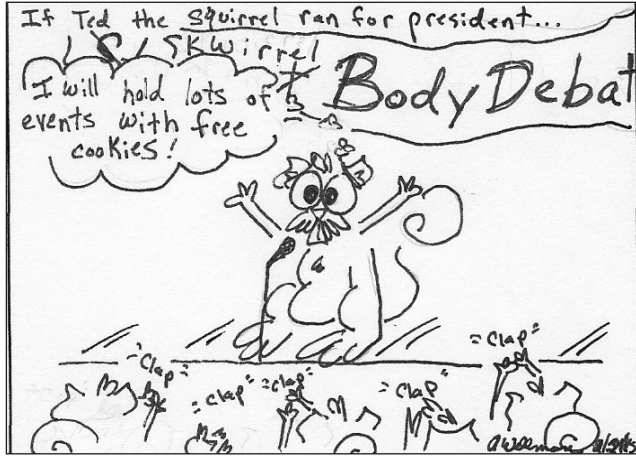 If Ted the Squirrel ran for president...
SKwirrel
I will hold lots of
events with free
cookies!
Body Debat
"clap"
"clap"
"clap"
"clap"
"clap"